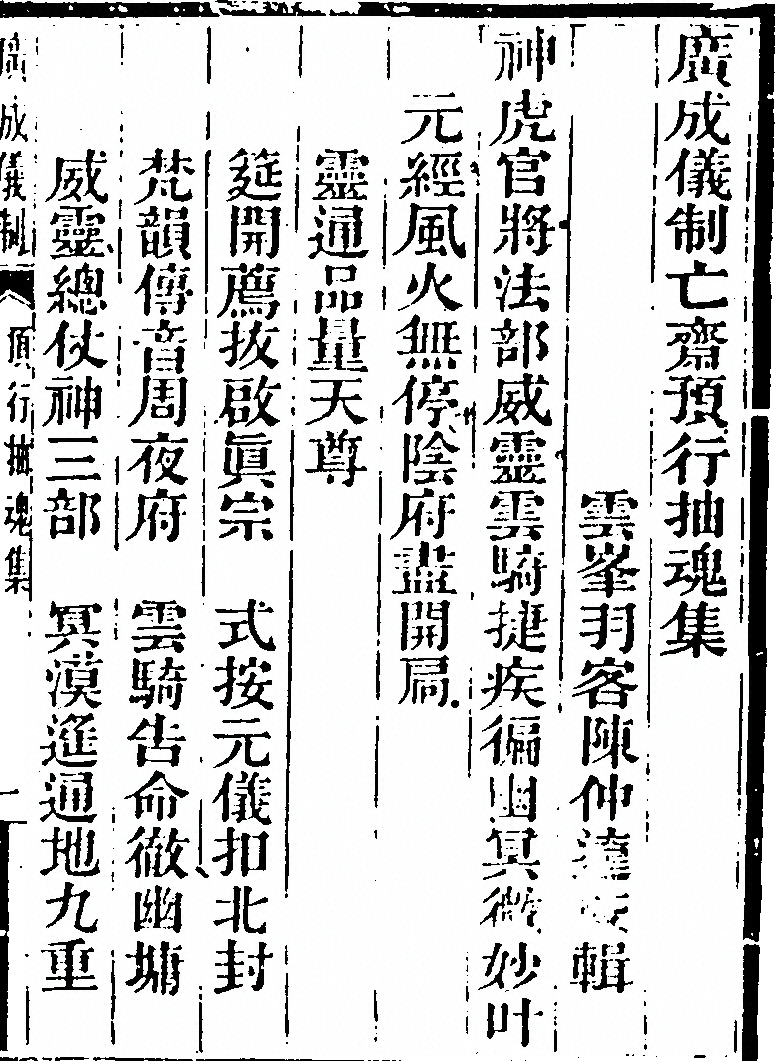 廣成儀制亡齋預行抽魂集
雲峯羽客陳仲遠 輯
神虎官將法部威靈雲騎捷疾徧幽冥微妙叶
元經風火無停陰府盡開扃
靈通品量天尊
筵開薦拔啟眞宗　式按元儀扣北封
梵韻傳音周夜府　雲騎告命徹幽墉
威靈總仗神三部　冥漠遙通地九重
廣成儀制　預行抽魂集　一